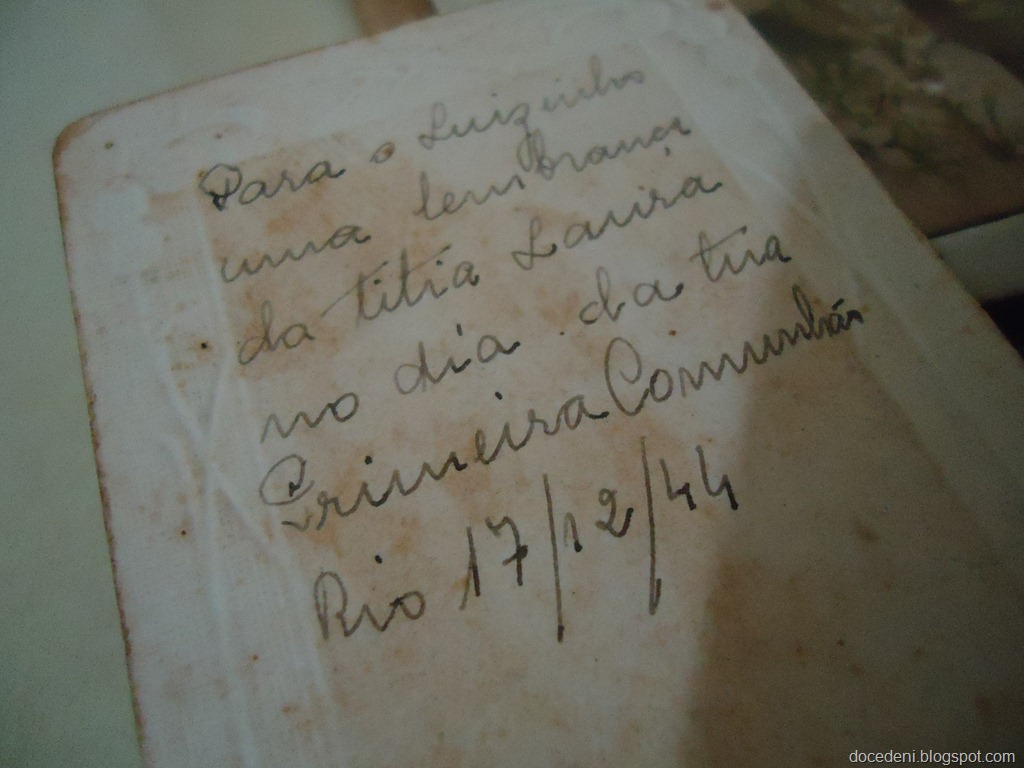 Para o Luizinho
uma lembrança
da titia Laura
no dia da tua
Primeira Comunhão
Rio 17/12/44
docedeni.blogspot.com